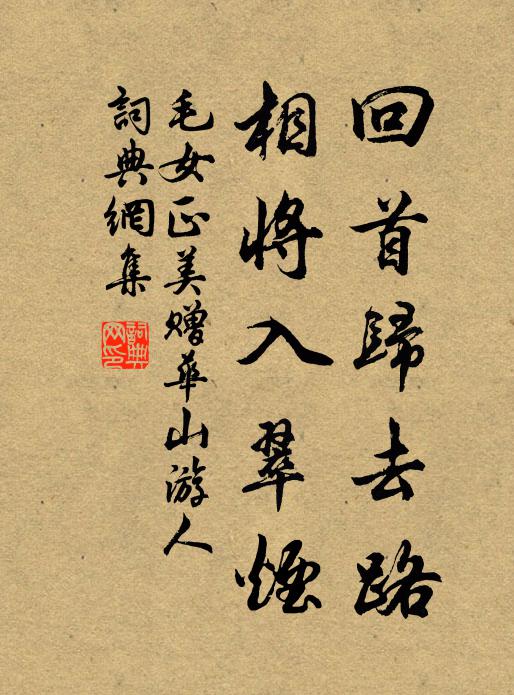 回首歸去路
相將入翠煙
毛女正美贈華山游人
詞典網集
詞典网印